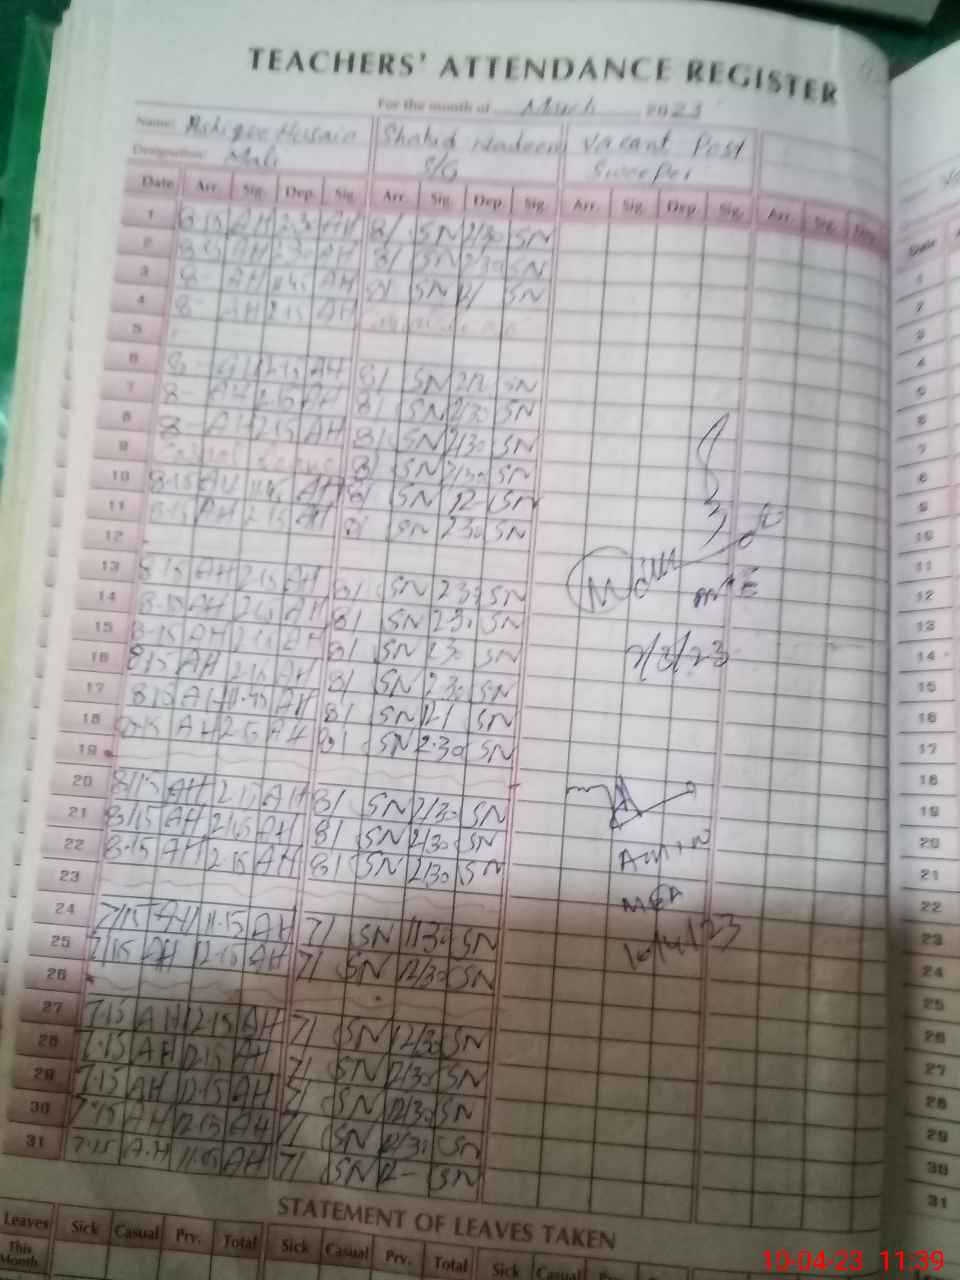 TEACHERS' ATTENDANCE REGISTER
For the month of March 2023
Name: Ashique Husain Shahid Nadeem Vacant Post
Designation: Mali S/G Sweeper
Date Arr. Sig. Dep. Sig. Arr. Sig. Dep. Sig. Arr. Sig. Dep. Sig. Arr. Sig. Dep.
1 8-15 AH 2-30 AH 8/ SN 2/30 SN
2 8-15 AH AH 8/ SN 2/30 SN
3 8- AH AH 8/ SN 12/ SN
4 8- AH 2-15 AH
5
6 8- AH 2-15 AH 8/ SN SN
7 8- AH 2-15 AH 8/ SN 2/30 SN
8 8- AH 2-15 AH 8/ SN 2/30 SN
9 Casual Leave 8/ SN 2/30 SN
10 8-15 AH 11-45 AH 8/ SN 12- SN
11 8-15 AH 2-15 AH 8/ SN 2-30 SN
12
13 8-15 AH 2-15 AH 8/ SN 2-30 SN
14 8-15 AH AH 8/ SN 2-30 SN
15 8-15 AH 2-15 AH 8/ SN SN
16 8-15 AH 2-15 AH 8/ SN 2-30 SN
17 8-15 AH 11-45 AH 8/ SN 12/ SN
18 8-15 AH 2-15 AH 8/ SN 2-30 SN
19
20 8/15 AH 2-15 AH 8/ SN 2/30 SN
21 8/15 AH 2-15 AH 8/ SN 2/30 SN
22 8-15 AH 2-15 AH 8/ SN 2/30 SN
23
24 7/15 AH 11-15 AH 7/ SN 11/30 SN
25 7/15 AH 12-15 AH 7/ SN 12/30 SN
26
27 7-15 AH 12-15 AH 7/ SN 12/30 SN
28 7-15 AH 12-15 AH 7/ SN 12/30 SN
29 7-15 AH 12-15 AH 7/ SN 12/30 SN
30 7-15 AH 12-15 AH 7/ SN 12/30 SN
31 7-15 A-H AH 7/ SN 12- SN
M&E
7/3/23
Admin
M&A
10/4/23
STATEMENT OF LEAVES TAKEN
Leaves Sick Casual Prv. Total Sick Casual Prv. Total Sick Casual
This Month
Date
1
2
3
4
5
6
7
8
9
10
11
12
13
14
15
16
17
18
19
20
21
22
23
24
25
26
27
28
29
30
31
10-04-23 11:39